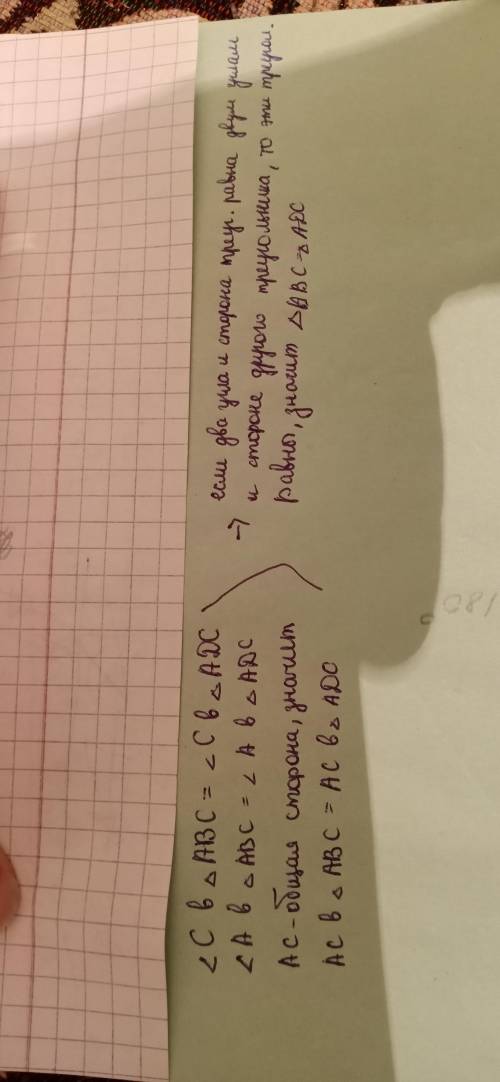 ∠C в △ABC = ∠C в △ADC
∠A в △ABC = ∠A в △ADC
AC - общая сторона, значит
AC в △ABC = AC в △ADC
→ если два угла и сторона треуг. равна двум углам
и стороне другого треугольника, то эти треугол.
равны, значит △ABC = △ADC